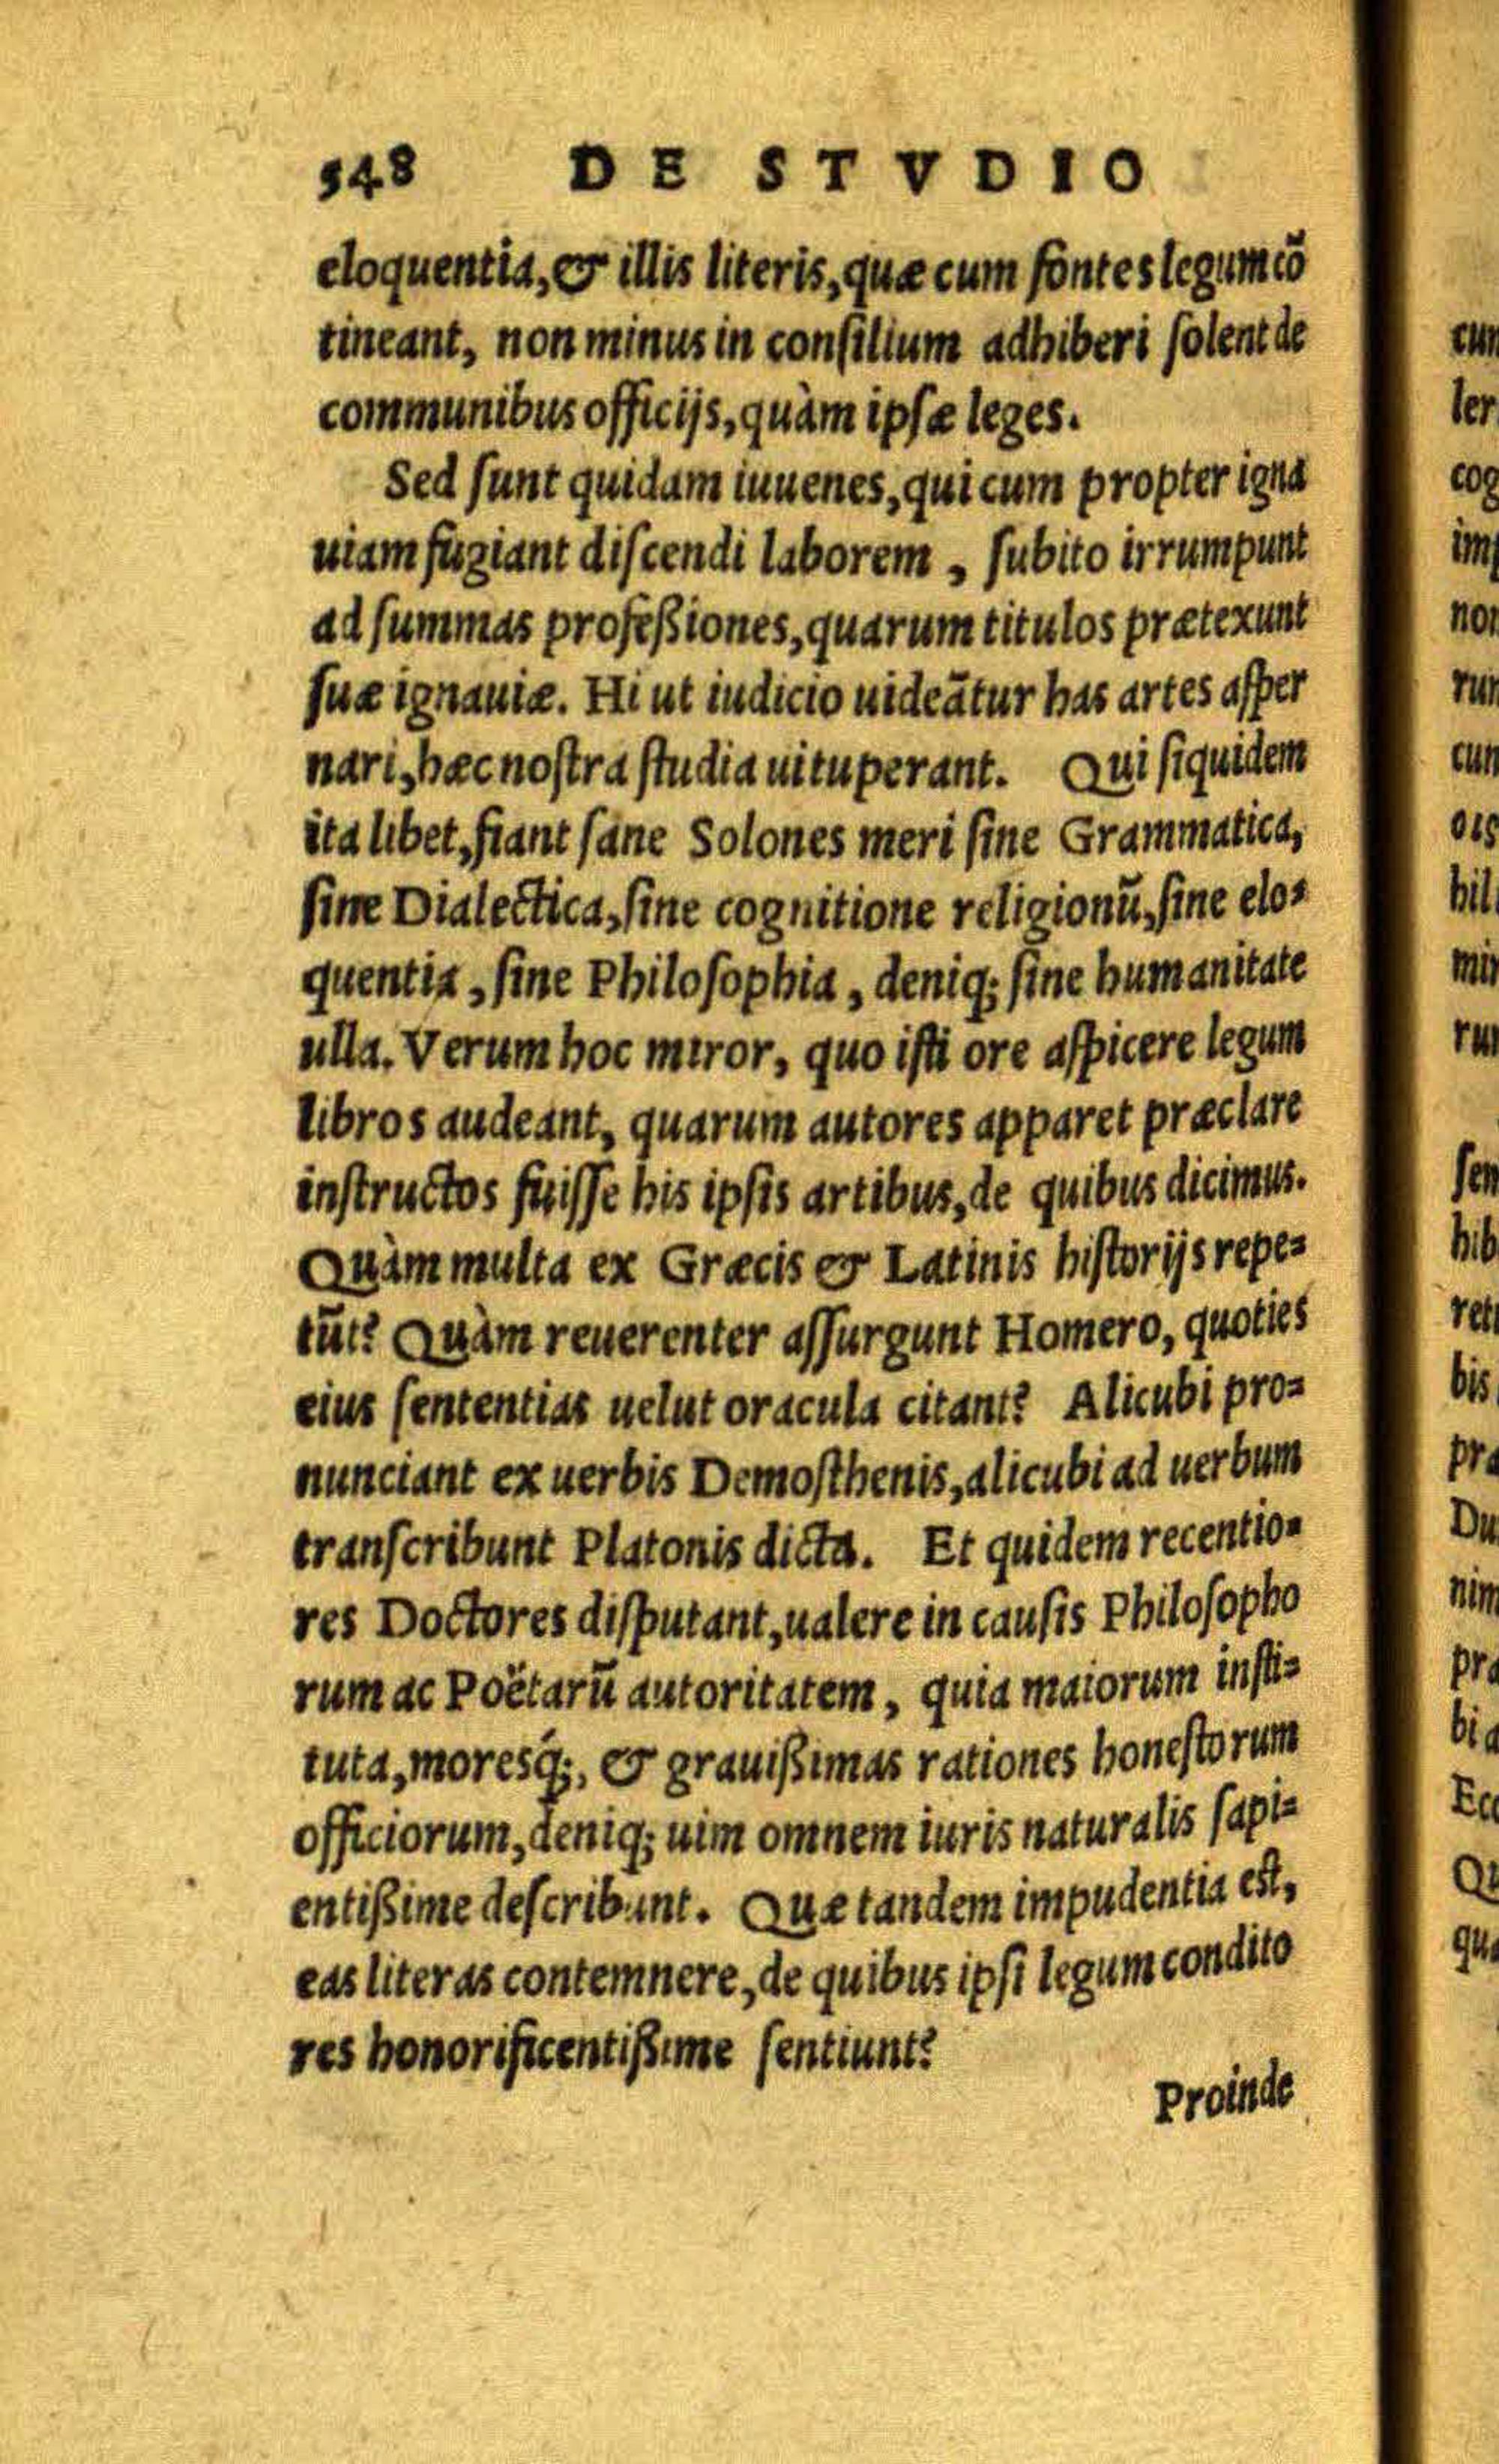 548 DE STVDIO
eloquentia, & illis literis, quæ cum fontes legum cõ
tineant, non minus in consilium adhiberi solent de
communibus officijs, quàm ipsæ leges.
Sed sunt quidam iuuenes, qui cum propter igna
uiam fugiant discendi laborem, subito irrumpunt
ad summas profeßiones, quarum titulos prætexunt
suæ ignauiæ. Hi ut iudicio uideãtur has artes asper
nari, hæc nostra studia uituperant. Qui siquidem
ita libet, fiant sane Solones meri sine Grammatica,
sine Dialectica, sine cognitione religionũ, sine elo-
quentia, sine Philosophia, deniq; sine humanitate
ulla. Verum hoc miror, quo isti ore aspicere legum
libros audeant, quarum autores apparet præclare
instructos fuisse his ipsis artibus, de quibus dicimus.
Quàm multa ex Græcis & Latinis historijs repe-
tũt? Quàm reuerenter assurgunt Homero, quoties
eius sententias uelut oracula citant? Alicubi pro-
nunciant ex uerbis Demosthenis, alicubi ad uerbum
transcribunt Platonis dicta. Et quidem recentio-
res Doctores disputant, ualere in causis Philosopho
rum ac Poëtarũ autoritatem, quia maiorum insti-
tuta, moresq́;, & grauißimas rationes honestorum
officiorum, deniq; uim omnem iuris naturalis sapi-
entißime describunt. Quæ tandem impudentia est,
eas literas contemnere, de quibus ipsi legum condito
res honorificentißime sentiunt?
Proinde
cun
ler
cog
imp
non
run
cun
bil
min
run
sen
hib
reti
bis
pra
Du
nim
pra
bi a
Ecc
Qu
qua